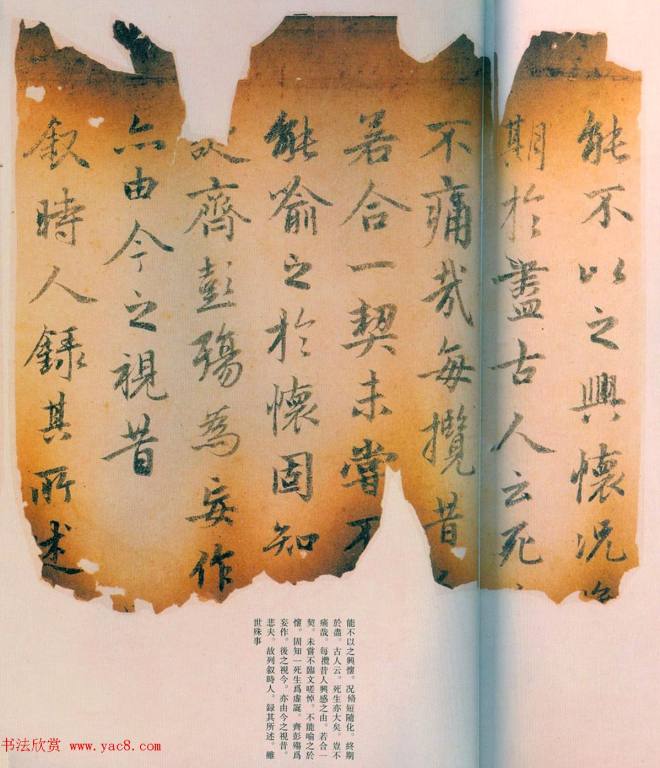 能不以之興懷況
期於盡古人云死
不痛哉每攬昔
若合一契未嘗不
能喻之於懷固知
齊彭殤為妄作
亦由今之視昔
叙時人録其所述
能不以之興懷。况脩短隨化。終期
於盡。古人云。死生亦大矣。豈不
痛哉。每攬昔人興感之由。若合一
契。未嘗不臨文嗟悼。不能喻之於
懷。固知一死生爲虛誕。齊彭殤爲
妄作。後之視今。亦由今之視昔。
悲夫。故列叙時人。録其所述。雖
世殊事
书法欣赏 www.yac8.com